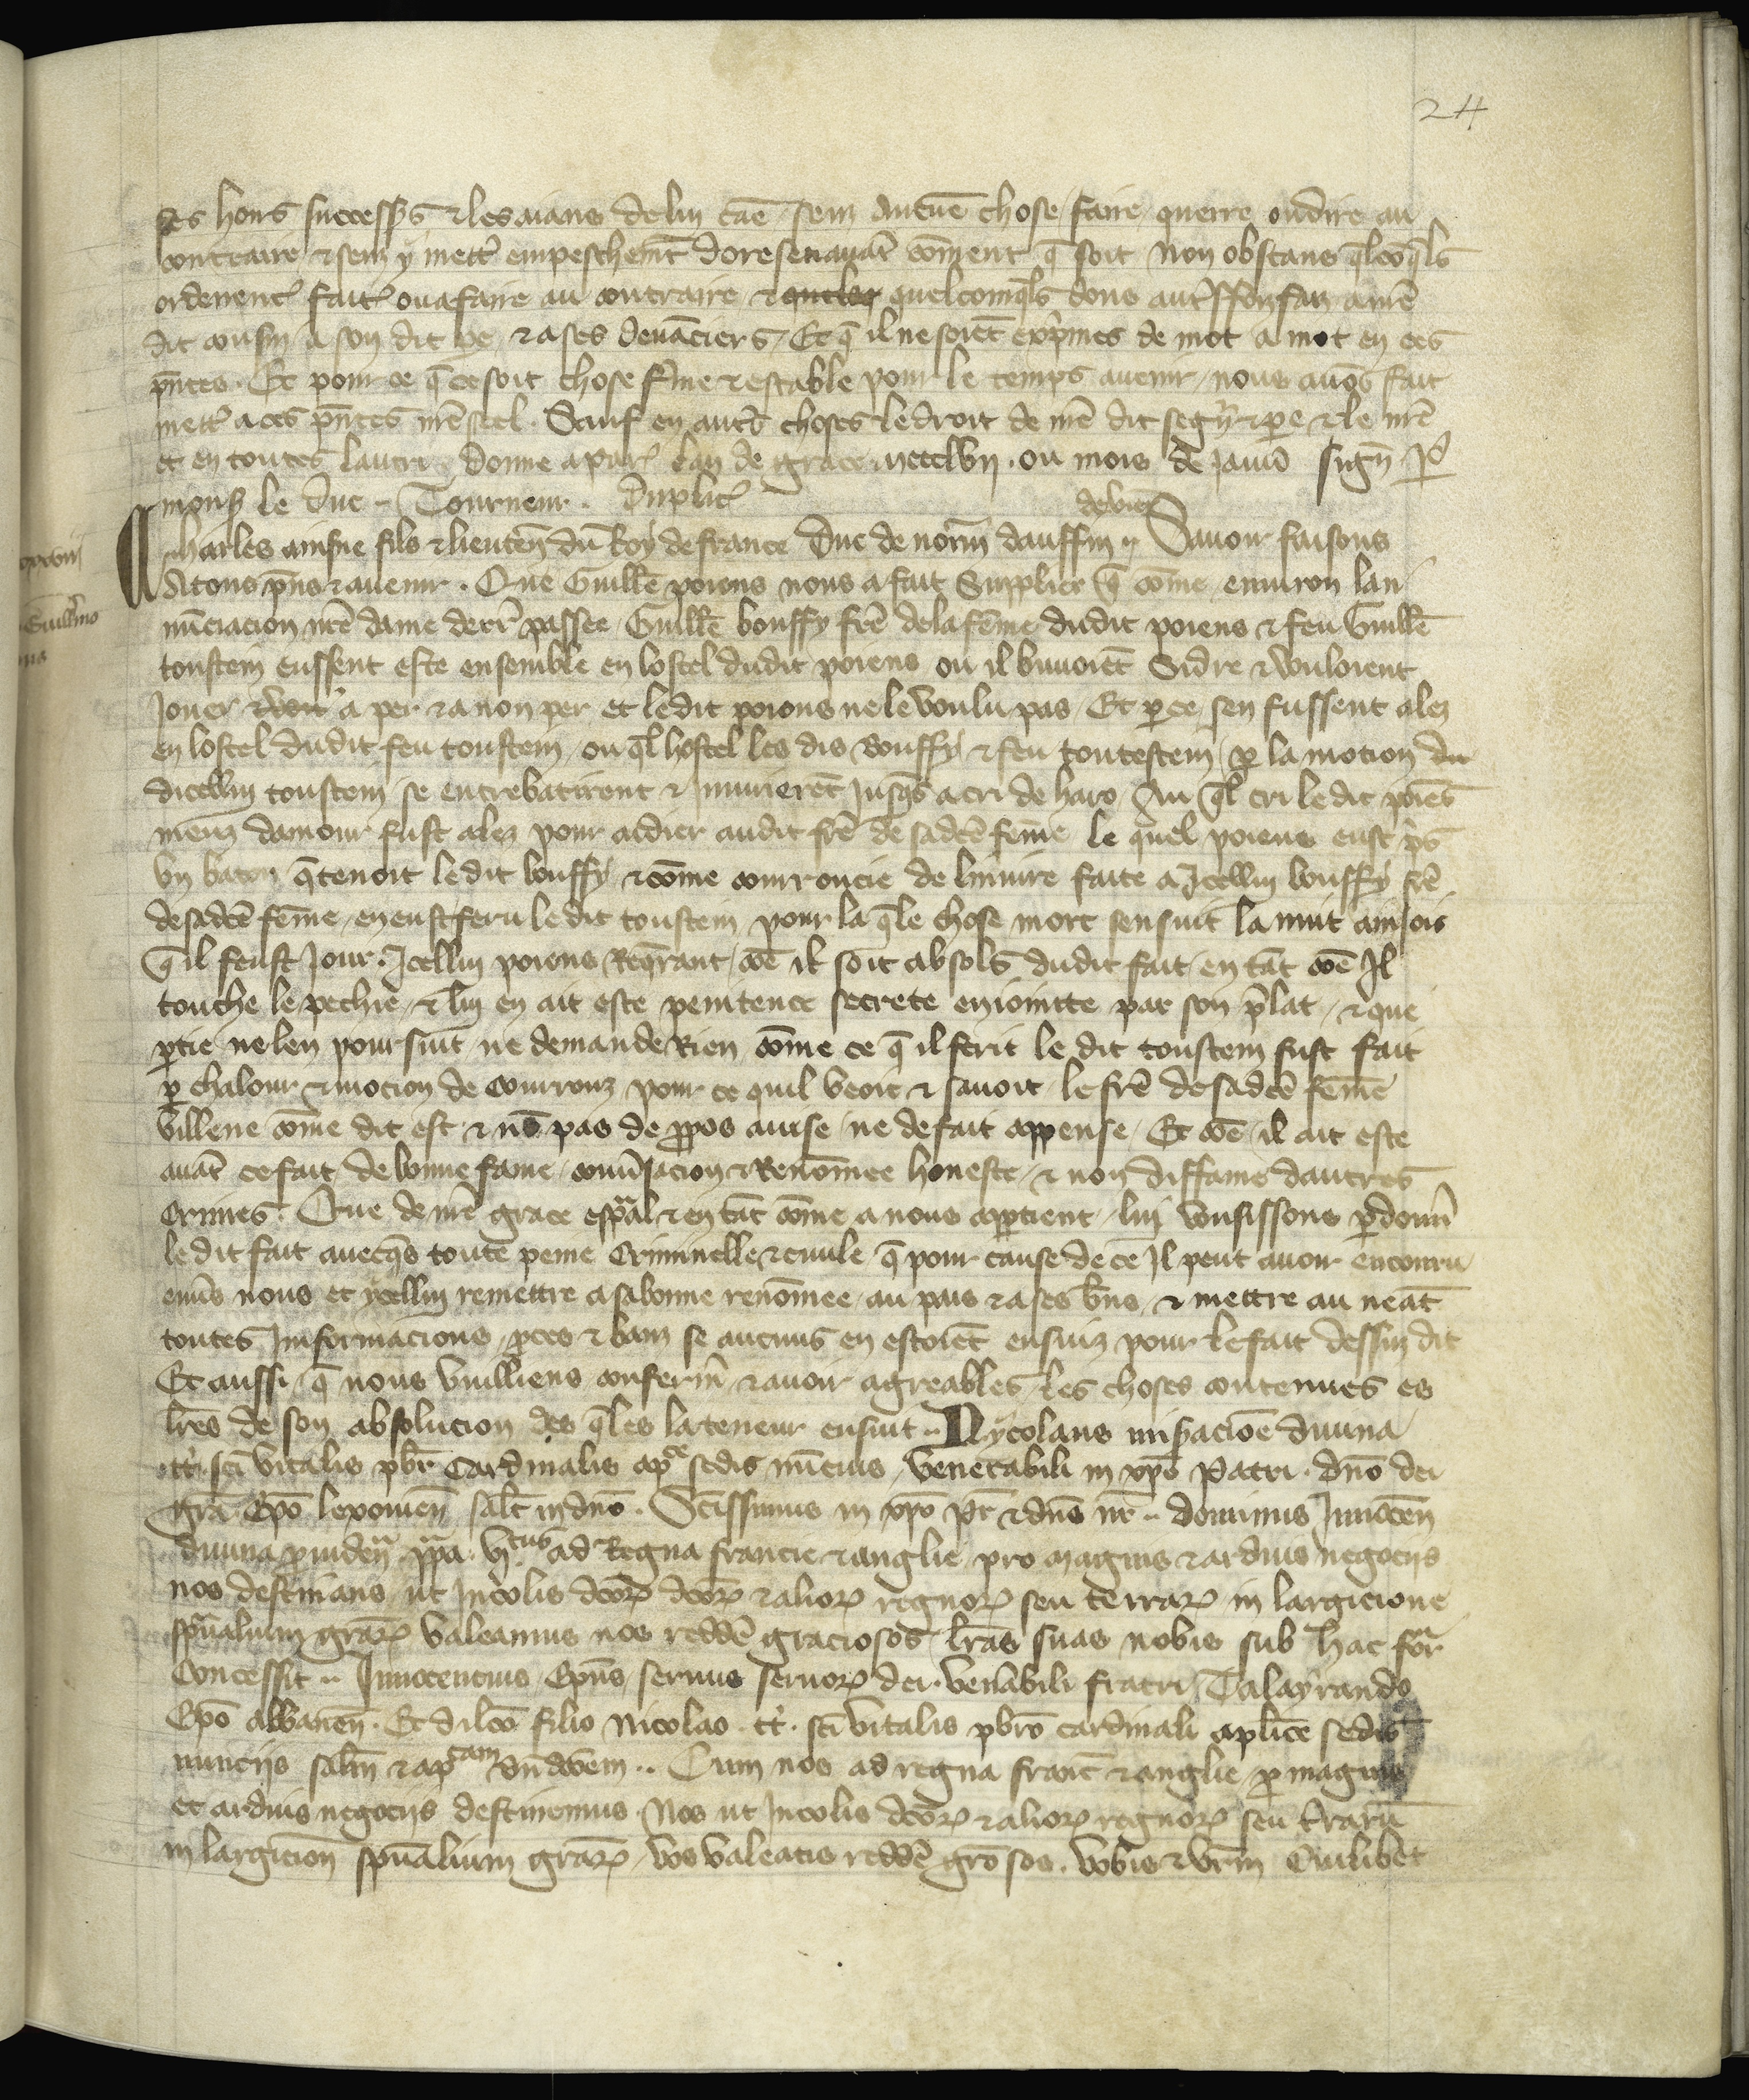 24
ses hoirs successrs & les aians de lui cāe, senz aucūe chose faire, querre ou dire au
contraire & senz y mettr empeschemt doresenauāt cōment q̄ soit Non obstans qlcōqls
ordenenc fait ou a faire au contraire & quelcomqls dons autrffoiz faiz a nrē
dit cousin a son dit pe & a ses deuāciers, Et q̄ il ne soiēt exprimes de mot a mot en ces
pñtes. Et pour ce q̄ ce soit chose fme & estable pour le temps auenir, nous auōs fait
mettr a ces pñtes nrē seel. Sauf en autrs choses le droit de nrē dit segnr & pe & le nrē
et en toutes lautri. Donne a par lan de grace mccclvii. ou mois de januī sign p
monsr le duc .. Tourneur. Duplic
de vien
Charles ainsne filz & lieuten du Roy de france Duc de norm dauffin .. Sauoir faisons
A tous pns & auenir. Que Guille poiens nous a fait supplier q̄ cōme enuiron lan
nūciacion nrē dame derr passee Guille bouffy frē de la feme dudit poiens & feu Guille
toustein eussent este ensemble en lostel dudit poiens ou il buuoiēt Sidre & vouloient
Jouer a per & a non per et le dit poiens ne le voulu pas, Et p ce sen fussent alez
en lostel dudit feu toustein, ou ql hostel les dis Bouffy & feu toutestein, p la mocion du
dicellui toustein se entrebatirent & iniurierēt Jusqs a cri de haro, Au ql cri le dit poiēs
meuz damour fust alez pour aidier audit frē de sa dcē feme Le quel poiens eust pris
vn baton q̄ tenoit le dit bouffy, & cōme courroucie de liniure faite a Jcellui bouffy frē
de sa dcē feme, en eust feru le dit toustein, pour la qle chose mort sensuit la nuit ainçois
q̄ il feust Jour. Jcellui poiens Requrant, cōe il soit absols dudit fait, en tāt cōe Il
touche le pechie, & lui en ait este penitence secrete enioincte par son plat, & que
ptie ne len poursuit ne demande Rien, cōme ce q̄ il ferit le dit toustein fust fait
p chalour & mocion de Courrouz pour ce quil veoit & sauoit le frē de sa dcē feme
villene cōme dit est & nō pas de ppos auise ne de fait appense, Et cōe il ait este
auāt ce fait de bonne fame, conūsacion & Renōmee honeste, & non diffame dautres
Crimes. Que de nrē grace espal & en tāt cōme a nous apptient, lui voussissons pdonnr
le dit fait auecqs toute peine Criminelle & ciuile q̄ pour cause de ce Il peut auoir encouru
enuīs nous et ycellui remettre a sa bonne renōmee, au pais & a ses bns, & mettre au neāt
toutes Informacions, pces & bans se aucuns en estoiēt ensuiz pour le fait dessuz dit
Et aussi, q̄ nous vuilliens confermr, & auoir agreables, les choses contenues es
lrēs de son absolucion des qles la teneur ensuit .. Nycolaus misacioē diuina
tt. sci vitalis pbr Cardinalis apce sedis nūcius, venerabili in xpo Patri. dno dei
gra Epo lexouien salt in dno. Scissimus in xpo Pr & dns nr .. dominus Innocen
diuina puiden ppa. vjtus ad Regna francie & anglie pro magnis & arduis negociis
nos destinans ut Incolis dcor dcor & alior regnor seu terrar in largicione
spualium grar valeamus nos reddē graciosos, lrās suas nobis sub hac for
Concessit .. Innocencius Epus seruus seruor dei. venabili fratri, Talayrando
Epo albanen. Et dilco filio Nicolao. tt. sci vitalis pbro cardinali aplice sedis
nuncijs salm & apcam bn dcōem .. Cum nos ad regna franc & anglie, p magnis
et arduis negocijs destinemus. Nos ut Incolis dcor & alior regnor seu trarū
in largicion spualium grar, vos valeatis reddē grosos. vobis & vrm Cuilibet